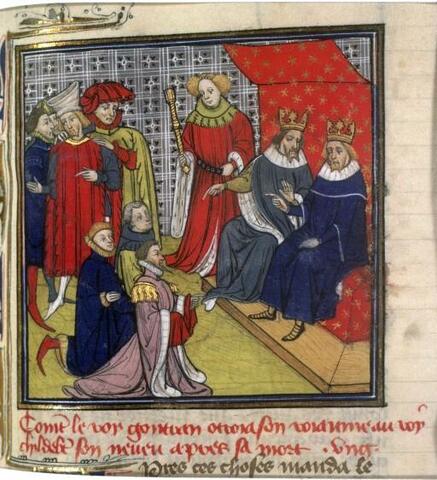 Comt le roy gontran otroia son roiaume au roy
childebt son neueu apres sa mort . Vng.
Pres ces choses manda le